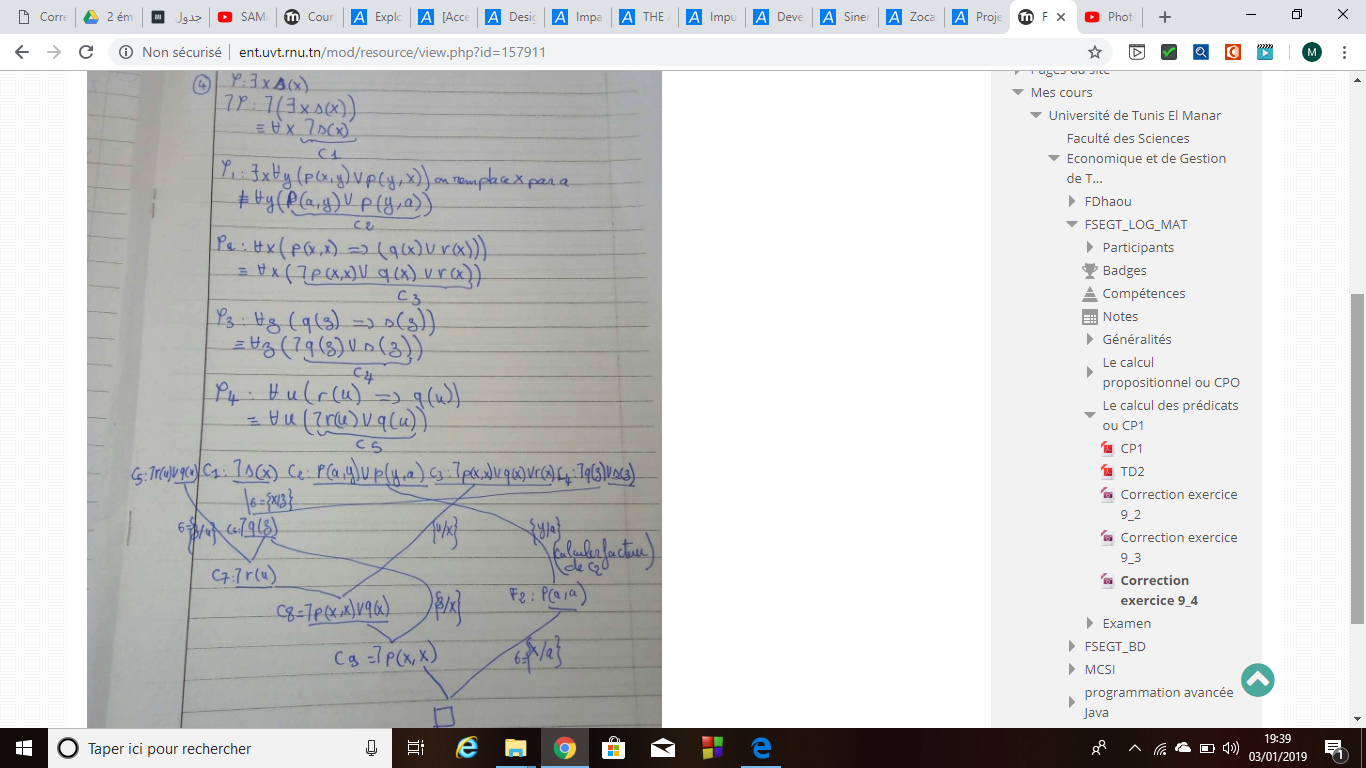 Corre
2 ém
جدول
SAM
Cour
Explo
[Acce
Desig
Impa
THE A
Impu
Deve
Siner
Zoca
Proje
F
Phot
Non sécurisé | ent.uvt.rnu.tn/mod/resource/view.php?id=157911
M
④ φ: ∃x s(x)
⌉φ: ⌉(∃x s(x))
≡ ∀x ⌉s(x)
C1
φ1: ∃x∀y (p(x,y) ∨ p(y,x)) on remplace x par a
∀y (p(a,y) ∨ p(y,a))
C2
φ2: ∀x (p(x,x) => (q(x) ∨ r(x)))
≡ ∀x (⌉p(x,x) ∨ q(x) ∨ r(x))
C3
φ3: ∀z (q(z) => s(z))
≡ ∀z (⌉q(z) ∨ s(z))
C4
φ4: ∀u (r(u) => q(u))
≡ ∀u (⌉r(u) ∨ q(u))
C5
C5: ⌉r(u) ∨ q(u) C1: ⌉s(x) C2: p(a,y) ∨ p(y,a) C3: ⌉p(x,x) ∨ q(x) ∨ r(x) C4: ⌉q(z) ∨ s(z)
6={x/z}
6={z/u} C6: ⌉q(z) {u/x} {y/a}
(calculer facteur
de C2)
C7: ⌉r(u)
C8 = ⌉p(x,x) ∨ q(x) {z/x} F2: P(a,a)
C9 = ⌉p(x,x) 6={x/a}
Pages du site
Mes cours
Université de Tunis El Manar
Faculté des Sciences
Economique et de Gestion
de T...
FDhaou
FSEGT_LOG_MAT
Participants
Badges
Compétences
Notes
Généralités
Le calcul
propositionnel ou CPO
Le calcul des prédicats
ou CP1
CP1
TD2
Correction exercice
9_2
Correction exercice
9_3
Correction
exercice 9_4
Examen
FSEGT_BD
MCSI
programmation avancée
Java
Taper ici pour rechercher
19:39
03/01/2019
1